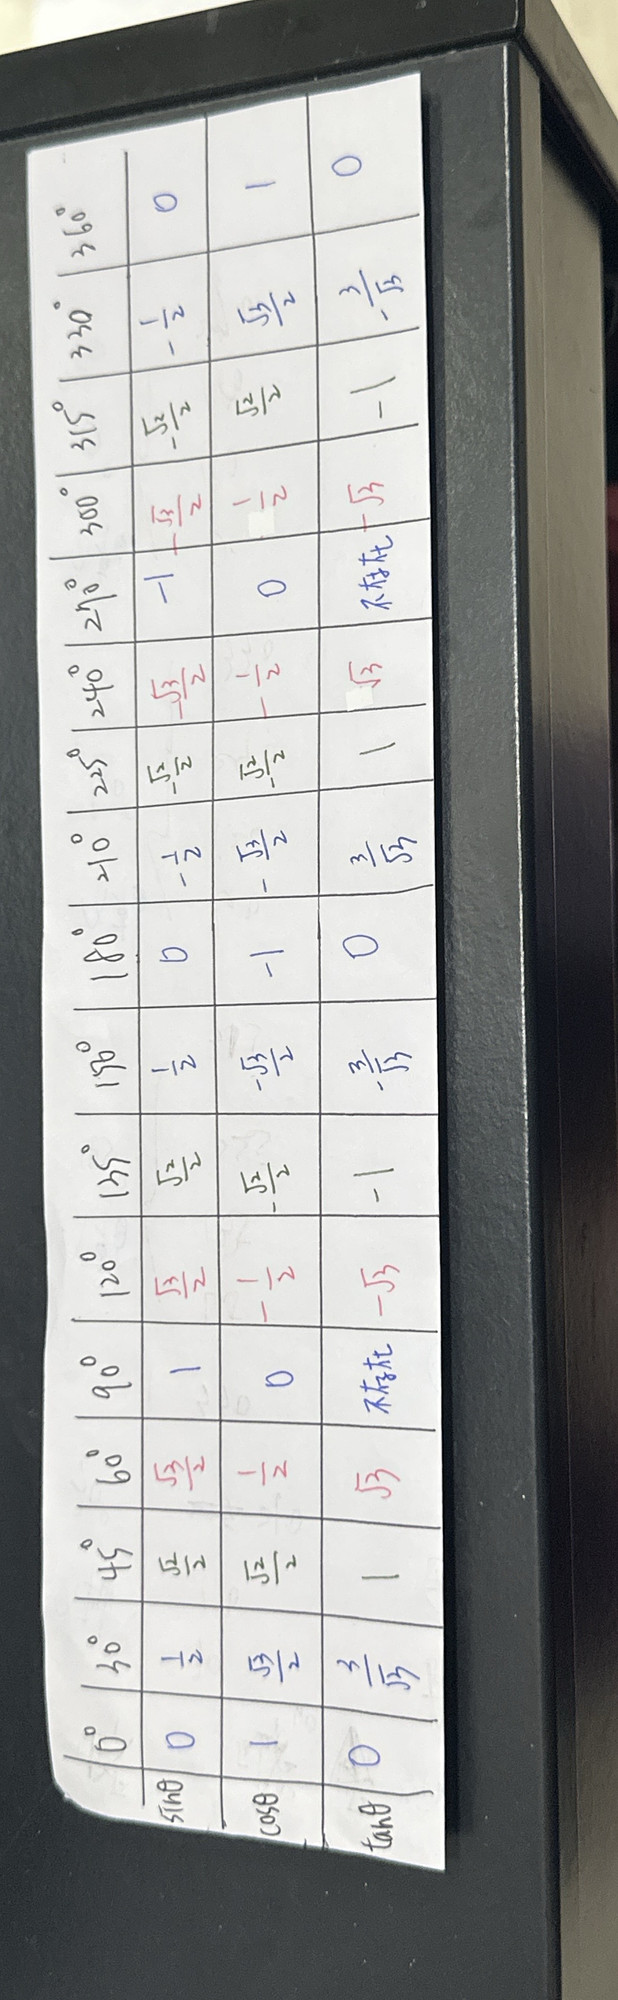 0° 30° 45° 60° 90° 120° 135° 150° 180° 210° 225° 240° 270° 300° 315° 330° 360°
sinθ 0 1/2 √2/2 √3/2 1 √3/2 √2/2 1/2 0 -1/2 -√2/2 -√3/2 -1 -√3/2 -√2/2 -1/2 0
cosθ 1 √3/2 √2/2 1/2 0 -1/2 -√2/2 -√3/2 -1 -√3/2 -√2/2 -1/2 0 1/2 √2/2 √3/2 1
tanθ 0 3/√3 1 √3 不存在 -√3 -1 -3/√3 0 3/√3 1 √3 不存在 -√3 -1 -3/√3 0